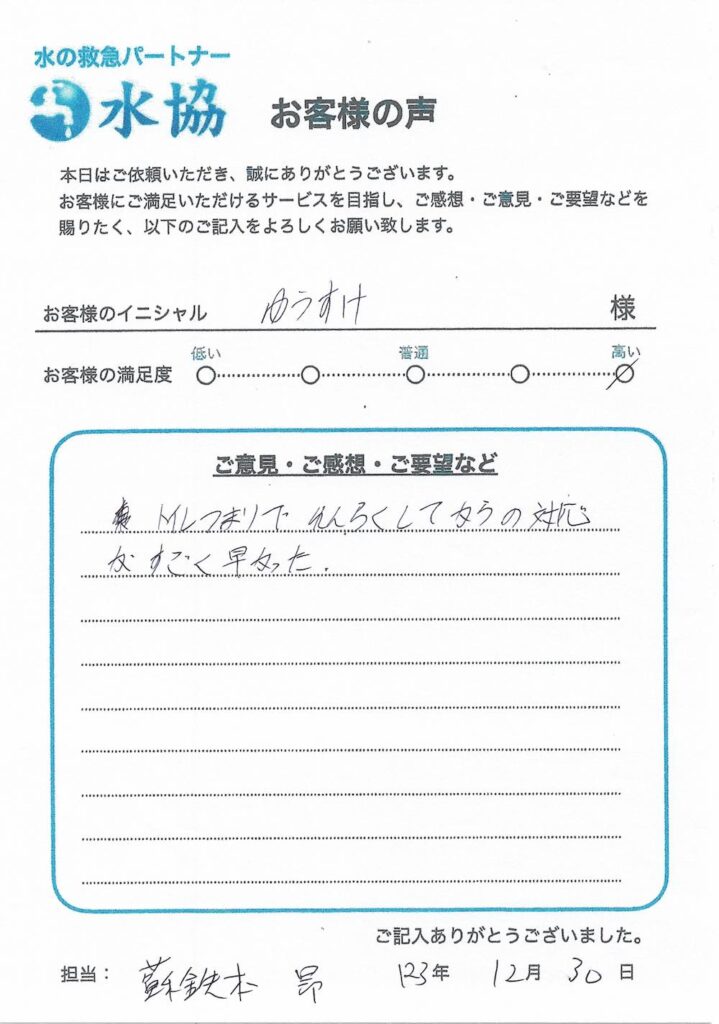 水の救急パートナー
水協
お客様の声
本日はご依頼いただき、誠にありがとうございます。
お客様にご満足いただけるサービスを目指し、ご感想・ご意見・ご要望などを
賜りたく、以下のご記入をよろしくお願い致します。
お客様のイニシャル ゆうすけ 様
低い 普通 高い
お客様の満足度
ご意見・ご感想・ご要望など
トイレつまりで れんらくして からの 対応
が すごく 早かった.
ご記入ありがとうございました。
担当： 蘇鉄本 昴 '23年 12月 30日